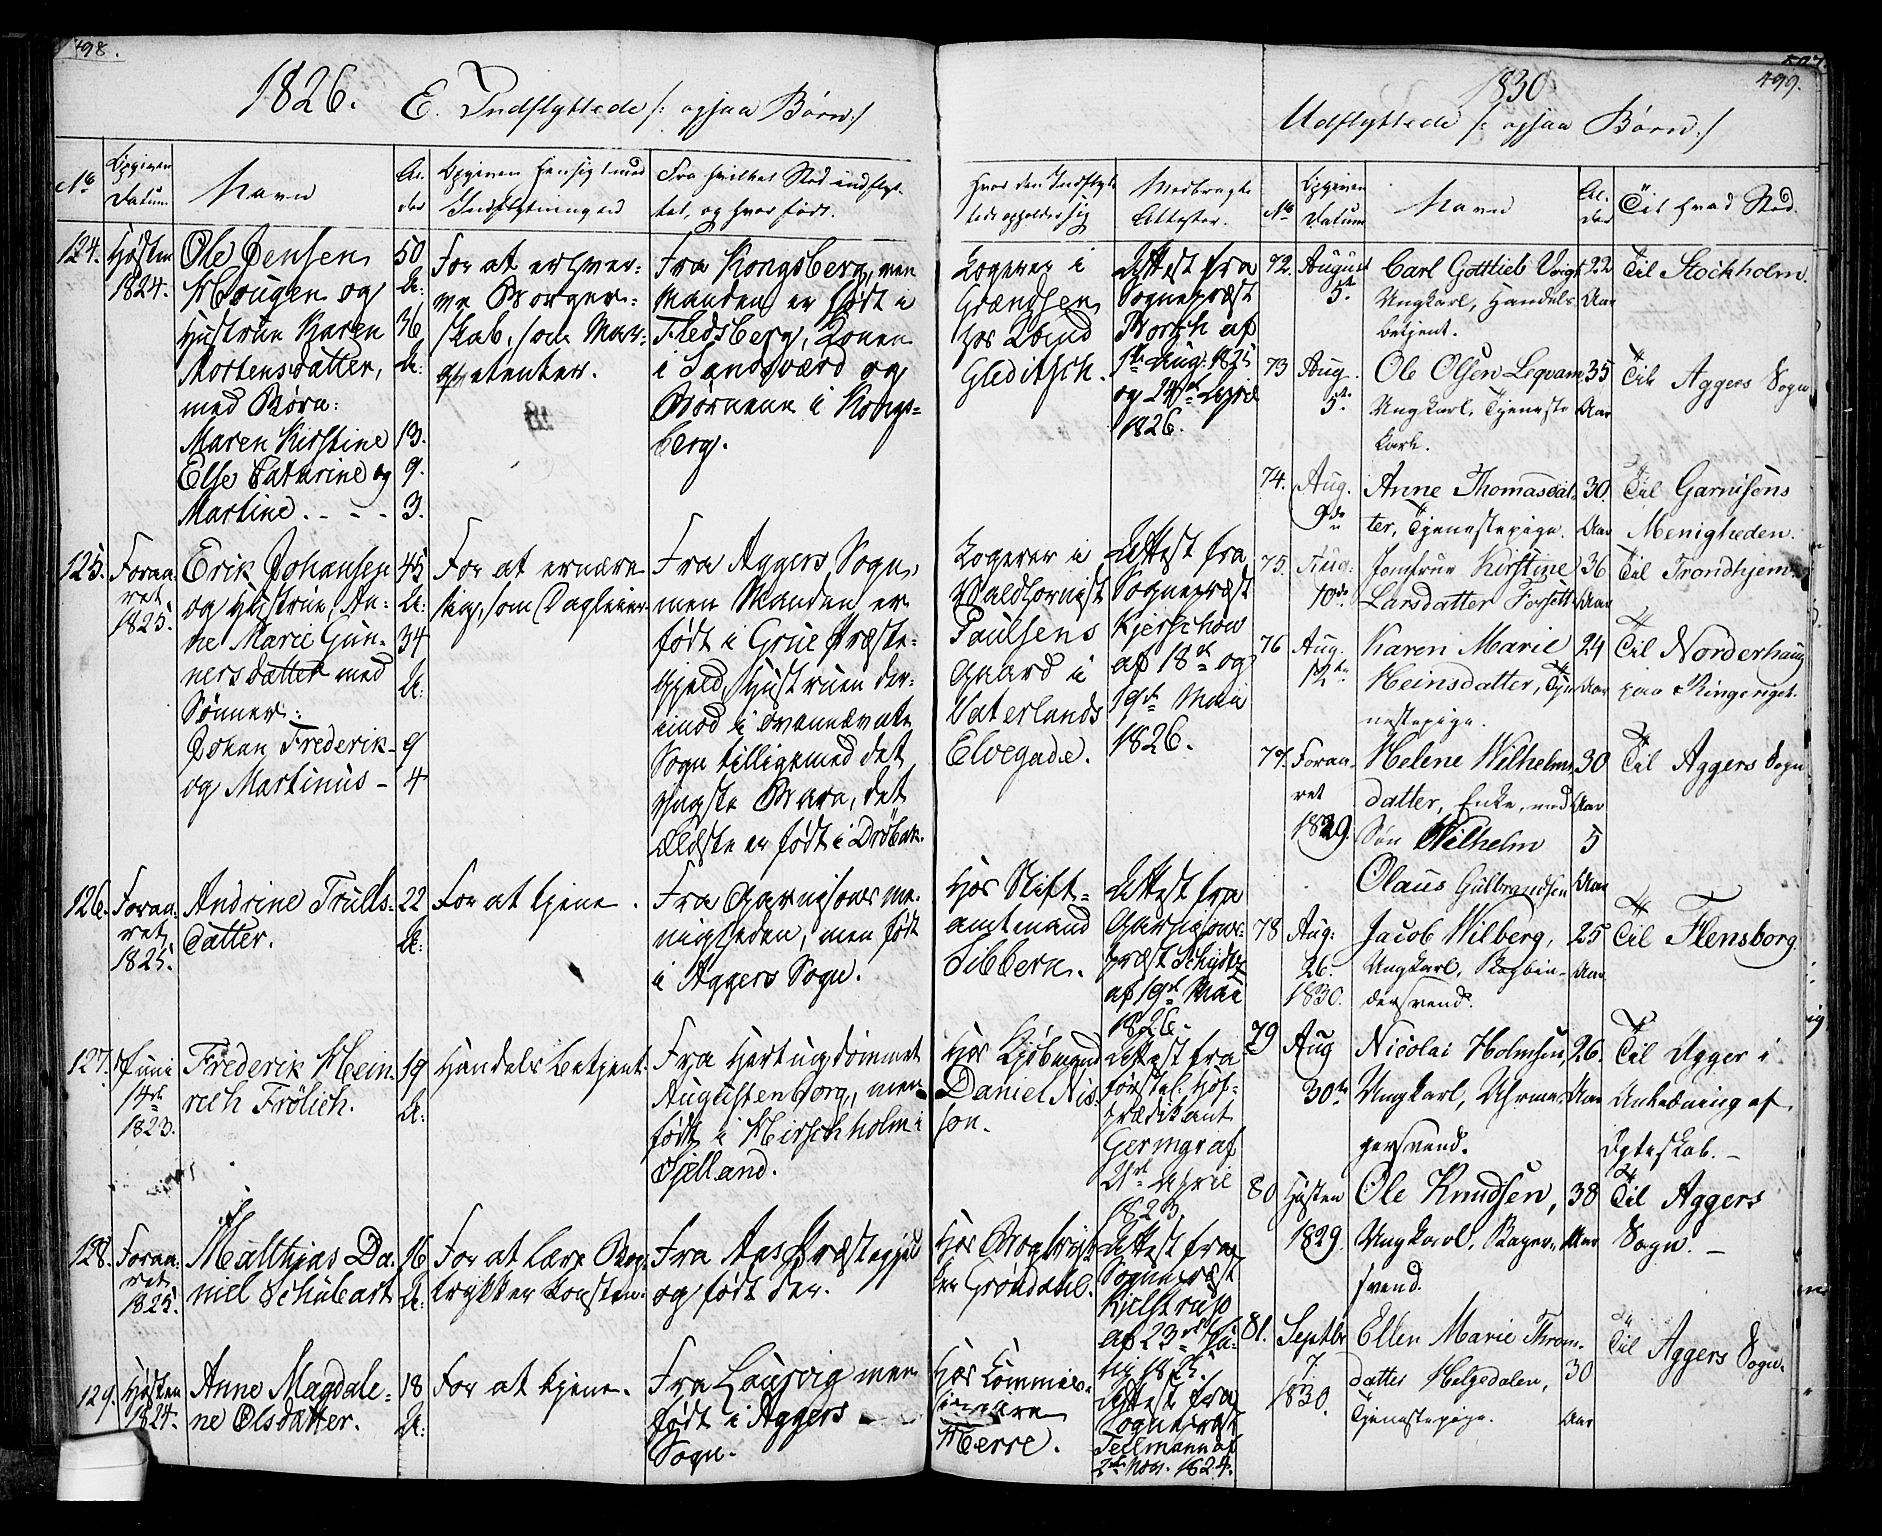 498.
1826. E. Indflyttede /: ogsaa Børn :/
No
Opgiven Datum
Navn
Alder
Opgiven Hensigt med Indflytningen
Fra hvilket Sted indflyttet, og hvor født.
Hvor den Indflyttede opholder sig
Medbragte Attester.
124.
Høsten
1824.
Ole Jensen
Hougen og
Hustrue Karen
Mortensdatter,
med Børn:
Maren Kirstine
Else Cathrine og
Martine . - - -
50
A:
36
A:
13.
9.
3.
For at erhver-
ve Borger-
skab, som Mar-
quetenter.
Fra Kongsberg, men
Manden er født i
Flesberg, Konen
i Sandsværd og
Børnene i Kongs-
berg.
Logerer i
Grændsen
hos Lbind
Gleditsch.
Attest fra
Sognepræst
Borsch af
1ste Aug: 1825
og 24de April
1826.
125.
Foraa-
ret
1825.
Erik Johansen
og Hustrue An-
ne Marie Gun-
nersdatter med
Sønner:
Johan Frederik
og Martinus -
45
A:
34
A:
9
4
For at ernære
sig, som Dagleier
Fra Aggers Sogn,
men Manden er
født i Grue Præste-
gjeld, Hustruen der-
imod i ovennævnte
Sogn tilligemed det
yngste Barn, det
ældste er født i Drøbak.
Logerer i
Waldhornist
Paulsens
Gaard i
Vaterlands
Elvegade.
Attest fra
Sognepræst
Kjerschow
af 18de og
19de Maii
1826.
126.
Foraa-
ret
1825.
Andrine Truls-
datter.
22
A:
For at tjene.
Fra Garnisons me-
nigheden, men født
i Aggers Sogn.
Hos Stift-
amtmand
Sibbern.
Attest fra
Garnisons-
præst Schydtz
af 19de Maii
1826.
127.
Juni
14de
1823.
Frederik Hein-
rich Frölich.
19
A:
Handels betjent.
Fra Hertugdømmet
Augustenborg, men
født i Hirschholm i
Sjelland.
Hos Kjøbmand
Daniel Nis-
son.
Attest fra
forstel: Hof-
prædikant
Germgraf
21de April
1823.
128.
Foraa-
ret
1825.
Matthias Da-
niel Schubart
16
A:
For at lære Bog-
trykker Konsten.
Fra Aas Præstegjeld
og født der.
Hos Bogtryk-
ker Grøndahl.
Attest fra
Sognepræst
Kjelstrup
af 23de Ju-
nij 1825.
129.
Høsten
1824.
Anne Magdale-
ne Olsdatter.
18
A:
For at tjene.
Fra Laurvig men
født i Aggers
Sogn.
Hos Kommis-
sionaire
Herre.
Attest fra
Sognepræst
Tellmann af
2de Nov. 1824.
499.
1830
Udflyttede /: ogsaa Børn :/
No
Opgiven Datum
Navn
Alder
Til hvad Sted.
72.
August
5te
Carl Gottlieb Voigt
Ungkarl, Handels
betjent.
22
Aar
Til Stockholm.
73
Aug.
5te
Ole Olsen Leqvam
Ungkarl, Tjeneste
karl.
35
Aar
Til Aggers Sogn
74.
Aug.
9de
Anne Thomasdat-
ter, Tjenestepige.
30.
Aar
Til Garnisons
Menigheden.
75.
Aug:
10de
Jomfrue Kirstine
Larsdatter Forsett
36
Aar
Til Trondhjem.
76
Aug.
12te
Karen Marie
Heinsdatter, Tje-
nestepige.
24
Aar
Til Norderhaug
paa Ringeriget.
77.
Foraa-
ret
1829.
Helene Wilhelms-
datter, Enke, med
Søn Wilhelm
Olaus Gulbrandsen
30
Aar
5
Aar
Til Aggers Sogn
78
Aug:
26.
1830.
Jacob Wilberg,
Ungkarl, Bogbin-
dersvend.
25
Aar
Til Flensborg
79
Aug
30te
Nicolai Holmsen,
Ungkarl, Uhrma-
gersvend.
26.
Aar
Til Agger i
Anledning af
Ægteskab. -
80
Høsten
1829.
Ole Knudsen,
Ungkarl, Bager-
svend.
38
Aar
Til Aggers
Sogn. -
81.
Septbr
7.
1830.
Ellen Marie Thron-
datter Helgedalen,
Tjenestepige.
30
Aar
Til Aggers Sogn.